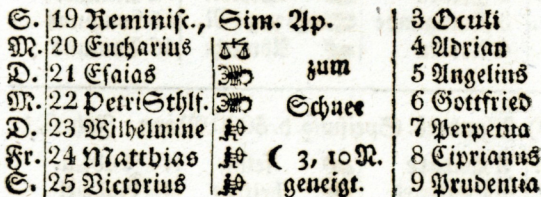 S. 19 Reminisc., Sim. Ap. 3 Oculi
M. 20 Eucharius 4 Adrian
D. 21 Esaias zum 5 Angelius
M. 22 Petri Sthlf. Schnee 6 Gottfried
D. 23 Wilhelmine 7 Perpetua
Fr. 24 Matthias ☾ 3, 10 N. 8 Ciprianus
S. 25 Victorius geneigt. 9 Prudentia